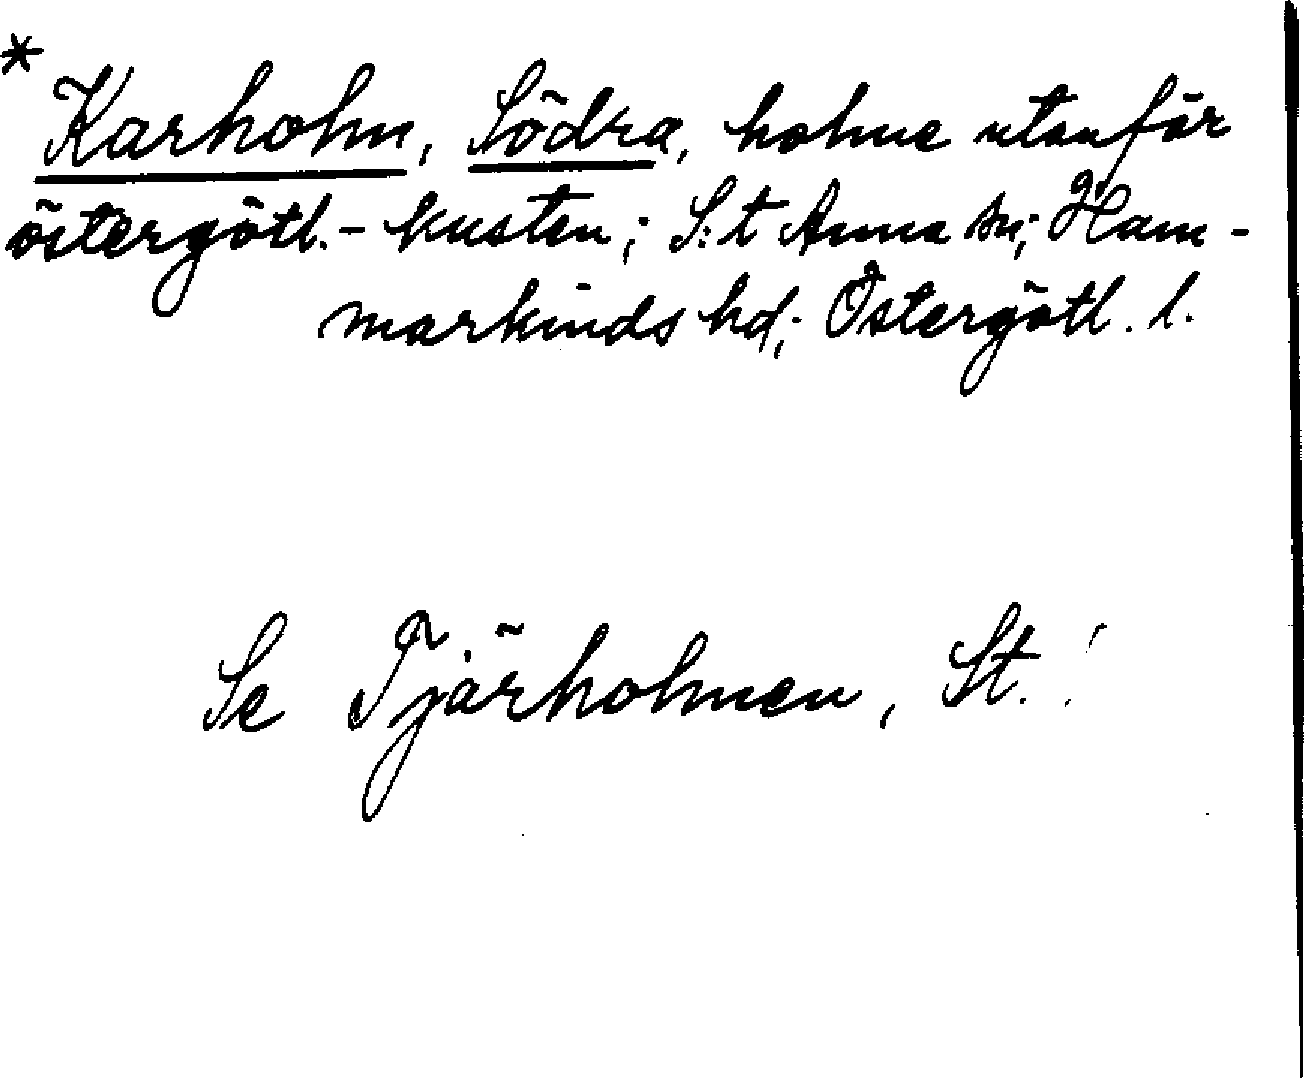 * Karholm, Södra, holme utanför
östergötl.- kusten; S:t Anna sn; Ham-
markinds hd; Östergötl. l.
Se Tjärholmen, St.!